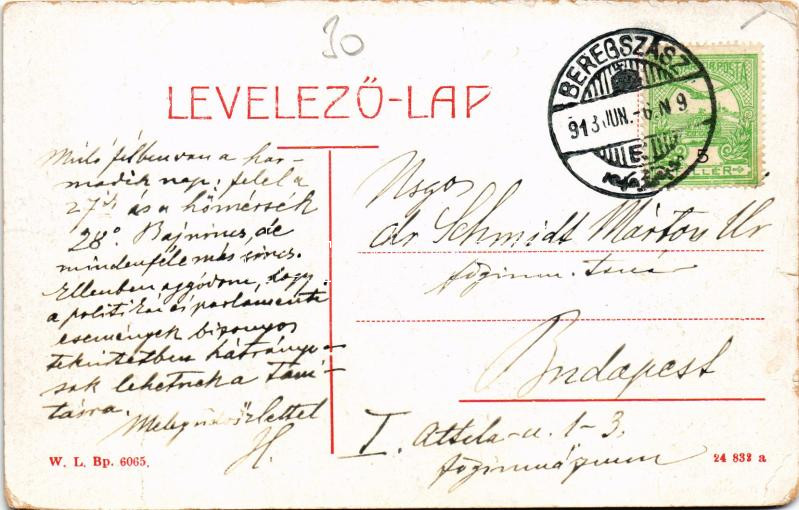 30
LEVELEZŐ-LAP
BEREGSZÁSZ
913 JUN.-6.N 9
E.
POSTA
5
LLÉR
Múló félben van a har-
madik nap: felel a
27 és a hőmérsék
28°. Baj nincs, de
mindenféle más sincs.
Ellenben aggódom, hogy
a politikai és parlamenti
események bizonyos
tekintetben hátrányo-
sak lehetnek a taní-
tásra.
Meleg üdvözlettel
H.
Nsgos
dr Schmidt Márton Ur
főgimn. tanár
Budapest
I. Attila-u. 1-3.
főgimnázium
W. L. Bp. 6065.
24 832 a